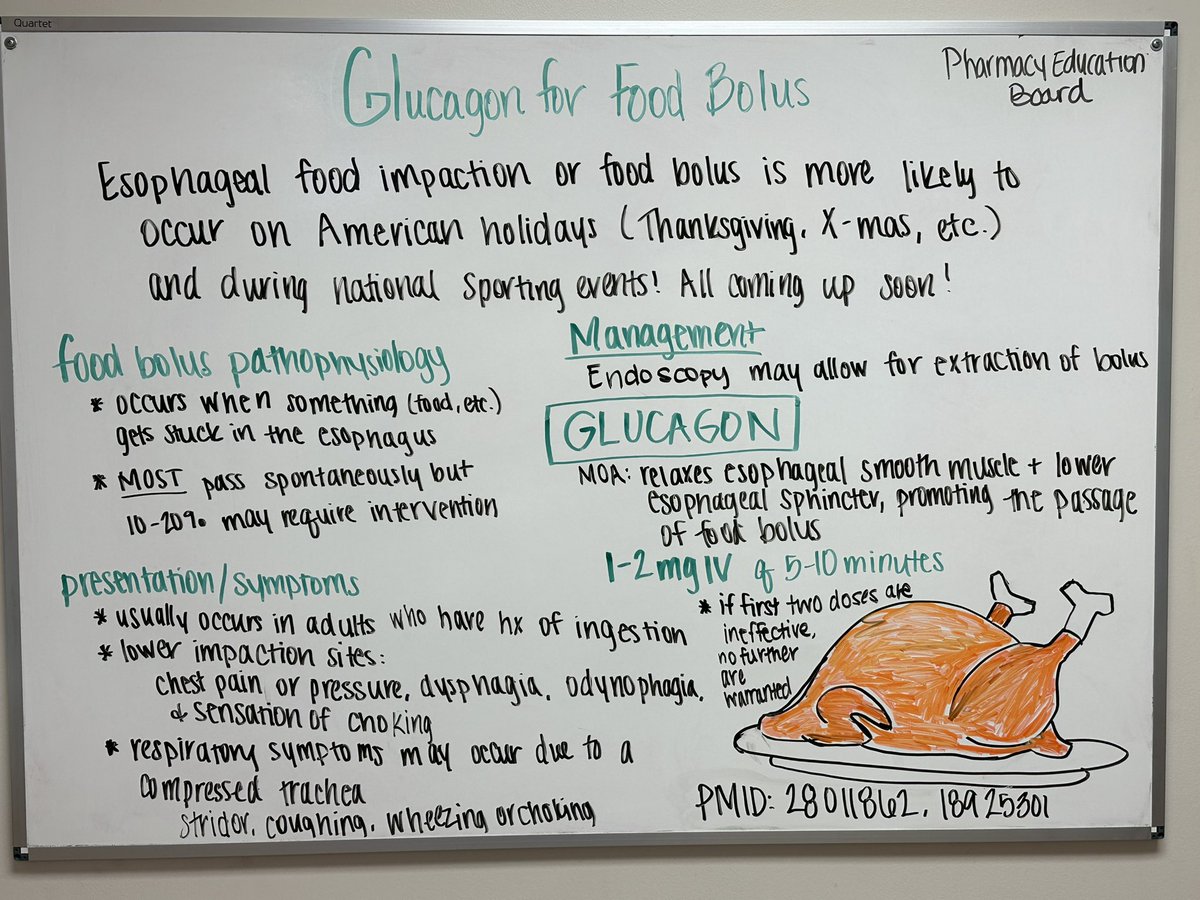 Quartet
Glucagon for Food Bolus
Pharmacy Education
Board
Esophageal food impaction or food bolus is more likely to
occur on American holidays (Thanksgiving, X-mas, etc.)
and during national sporting events! All coming up soon!
food bolus pathophysiology
* occurs when something (food, etc.)
gets stuck in the esophagus
* MOST pass spontaneously but
10-20% may require intervention
presentation/symptoms
* usually occurs in adults who have hx of ingestion
* lower impaction sites:
chest pain or pressure, dysphagia, odynophagia,
& sensation of choking
* respiratory symptoms may occur due to a
compressed trachea
stridor, coughing, wheezing or choking
Management
Endoscopy may allow for extraction of bolus
GLUCAGON
MOA: relaxes esophageal smooth muscle + lower
esophageal sphincter, promoting the passage
of food bolus
1-2mg IV q 5-10 minutes
* if first two doses are
ineffective,
no further
are
warranted
PMID: 28011862, 18925301